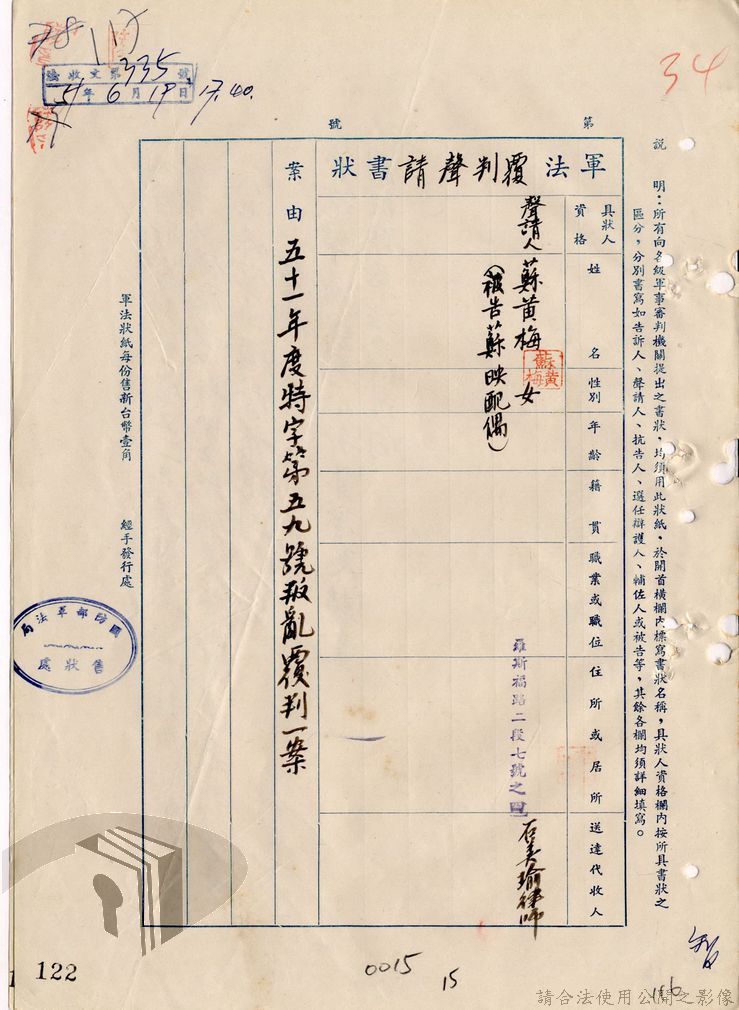 34
78 117
法收文第335號
51年6月19日
17.40.
第 號
說 明：所有向各級軍事審判機關提出之書狀，均須用此狀紙，於開首橫欄內標寫書狀名稱，具狀人資格欄內按所具書狀之
區分，分別書寫如告訴人、聲請人、抗告人、選任辯護人、輔佐人或被告等，其餘各欄均須詳細填寫。
軍法覆判聲請書狀
具狀人
資格
姓 名
性別
年齡
籍貫
職業或職位
住所或居所
送達代收人
聲請人
蘇黃梅
蘇黃梅
女
羅斯福路二段七號之四
石美瑜律師
（被告蘇映配偶）
案由
五十一年度特字第五九號叛亂覆判一案
軍法狀紙每份售新台幣壹角
經手發行處
國防部軍法局
售狀處
122
0015
15
請合法使用公開之影像